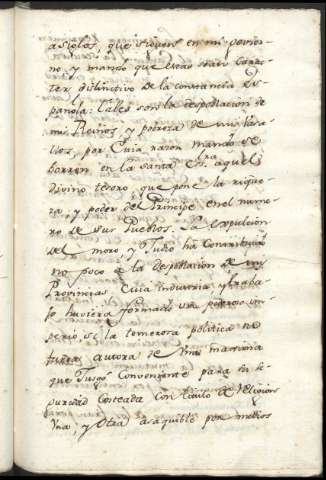 asiolos, que siguen en mi goviern
no y mando que estas seais carac
ter distinctivo de la constancia Es
panola: Tales son la despoblacion de
mis Reinos y pobreza de mis Vasa
llos, por Cuia razon mando se
borren en la Santa aquel
divino tesoro, que pone la rique
za, y poder del Principe en el nume
ro de sus Pueblos. La expulsion
del moro y Judio ha contribuido
no poco à la despoblacion de mis
Provincias Cuia Industria y traba
jo huviera formado un poderoso im
perio, si la temerosa politica no
fuera autora de una maxima
que Juzgó Conveniente para su se
guridad Costeada con titulo de Religion
Una, y Otra asequible por medios